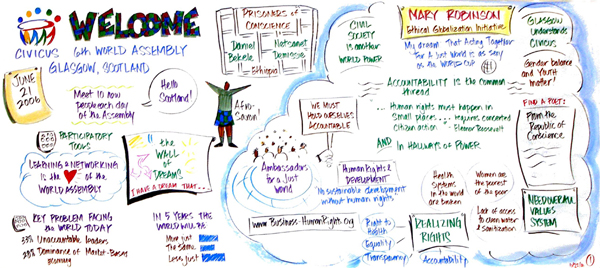 WELCOME
CIVICUS 6th WORLD ASSEMBLY
GLASGOW, SCOTLAND
JUNE
21
2006
Meet 10 new
people each day
of the Assembly
Hello
Scotland!
PARTICIPATORY
TOOLS
LEARNING & NETWORKING
IS the
of the
WORLD ASSEMBLY
the
WALL
OF
DREAMS
I HAVE A DREAM THAT...
KEY PROBLEM FACING
the WORLD TODAY
33% Unaccountable leaders
Dominance of Market-Based
economy
IN 5 YEARS THE
WORLD WILL BE
More just
The same
Less just
PRISONERS of
CONSCIENCE
Daniel
Bekele
Netsanet
Demissie
Ethiopia
AFRO-
CIVIL
SOCIETY
IS another
WORLD POWER
WE MUST
HOLD OURSELVES
ACCOUNTABLE
Ambassadors
for a Just
World
www.Business-HumanRights.org
MARY ROBINSON
Ethical Globalization Initiative
My dream That Acting Together
For A Just World is as sexy
as the WORLD CUP
#1
ACCOUNTABILITY IS the common
thread
... Human rights must happen in
small places... requires concerted
citizen action - Eleanor Roosevelt
AND In HALLWAYS OF POWER
Human Rights &
DEVELOPMENT
No sustainable development
without human rights.
Right to
Health
Equality
Transparency
REALIZING
RIGHTS
Accountability
Health
Systems
in the world
are broken
Women are
the poorest
of the poor
Lack of access
to clean water
& sanitization
GLASGOW
understands
CIVICUS
Gender balance
and YOUTH
matter!
FIND A POET:
From the
Republic of
Conscience
NEED OVERALL
VALUES
SYSTEM
1